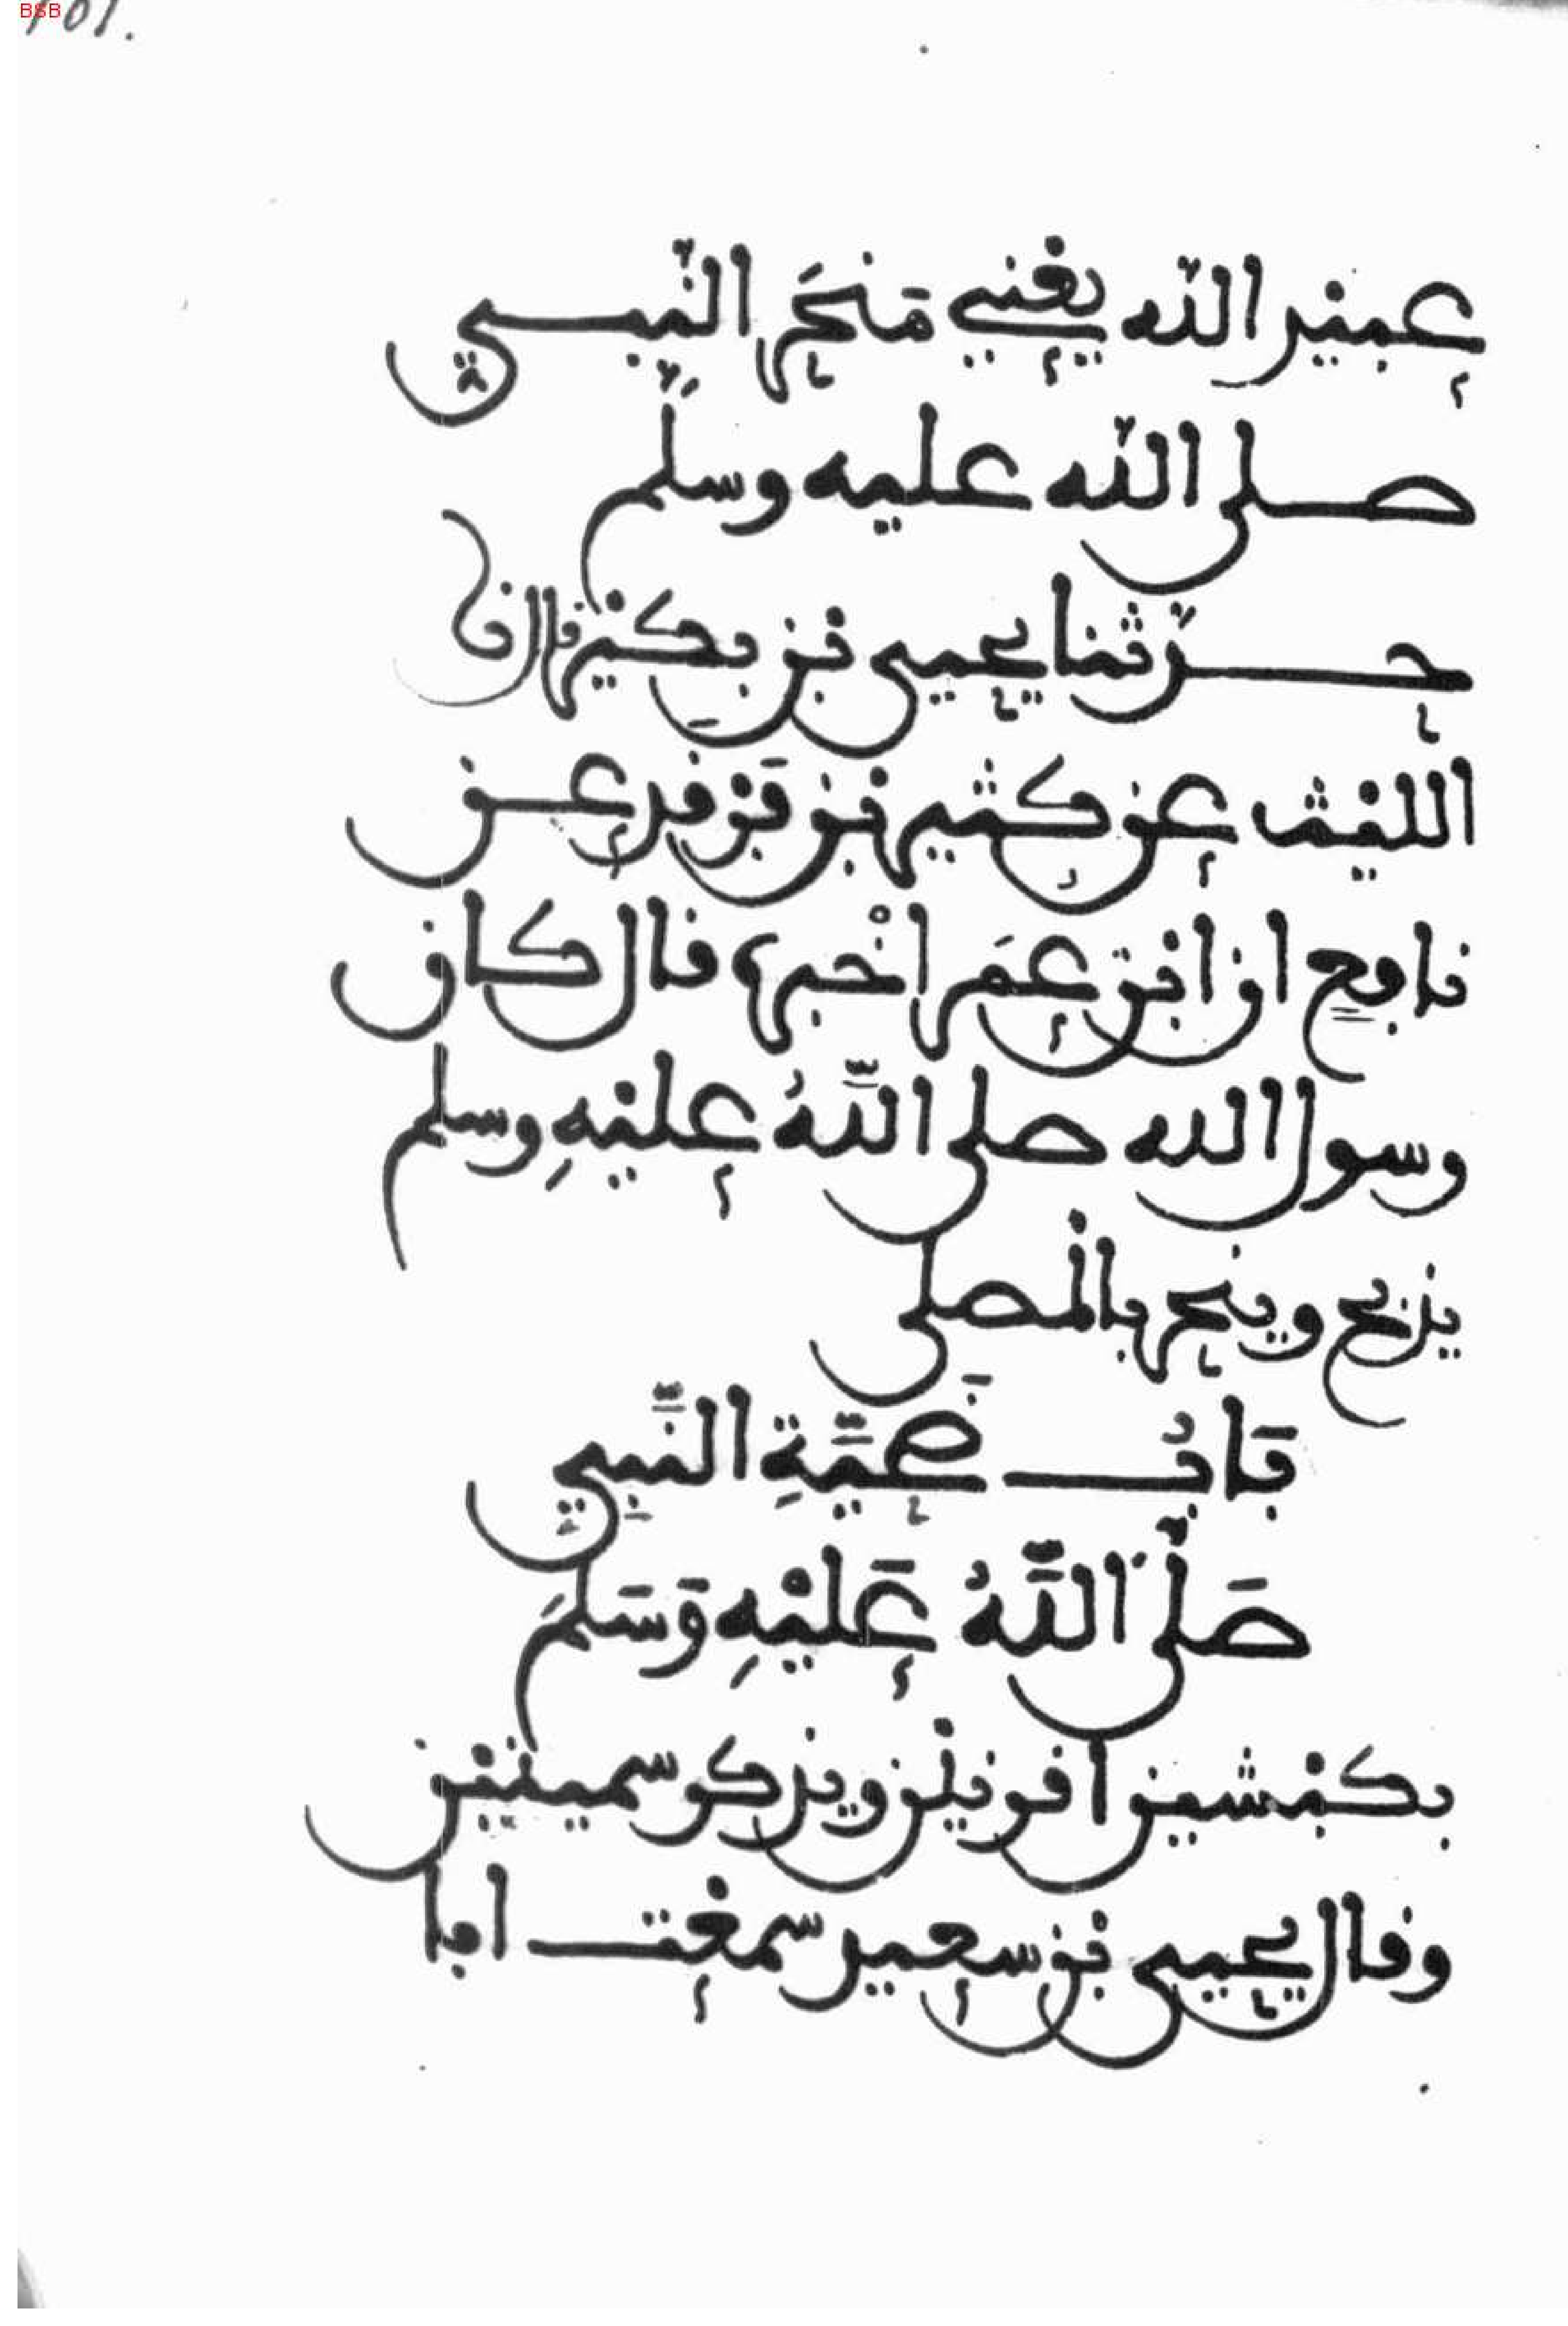 101.
عبيد الله يعني منحر النبي
صلى الله عليه وسلم
حدثنا يحيى بن بكير قال نا
الليث عن كثير بن فرقد عن
نافع ان ابن عمر اخبره قال كان
رسول الله صلى اللهُ عليْهِ وسلم
يذبح وينحر بالمصلى
بَابُ ضحِيَّةِ النَّبِيِّ
صَلَّى اللَّهُ عَلَيْهِ وَسَلمَ
بكبشين اقرنين ويذكر سمينين
وقال يحيى بن سعيد سمعت ابا